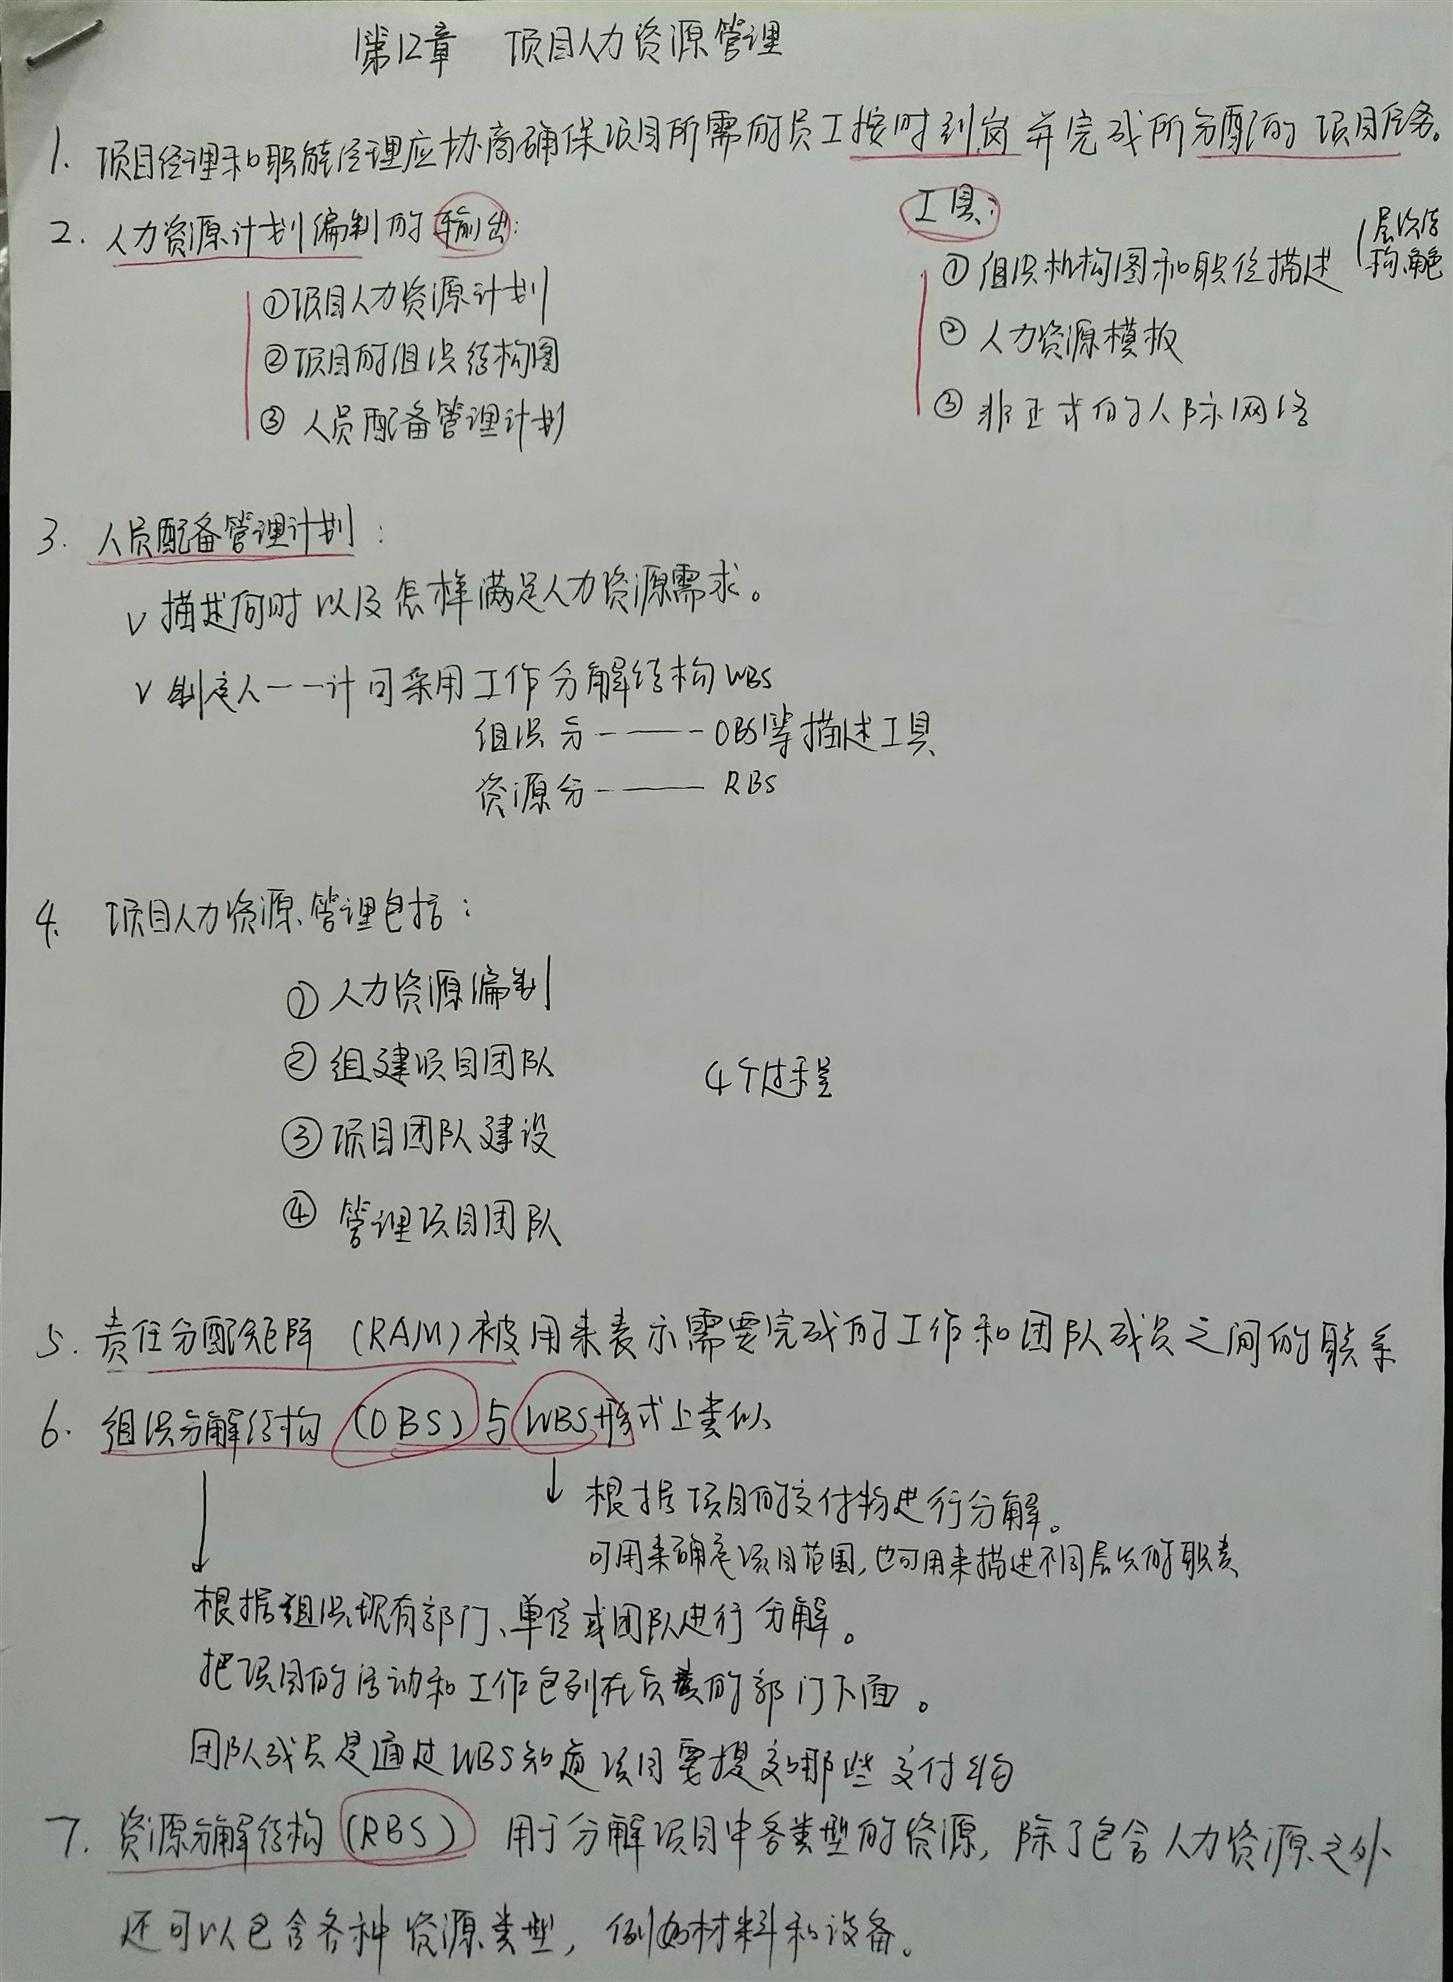 第12章 项目人力资源管理
1. 项目经理和职能经理应协商确保项目所需的员工按时到岗并完成所分配的项目任务。
2. 人力资源计划编制的输出:
①项目人力资源计划
②项目的组织结构图
③ 人员配备管理计划
工具:
①组织机构图和职位描述 (层次结构,角色
② 人力资源模板
③ 非正式的人际网络
3. 人员配备管理计划:
∨ 描述何时以及怎样满足人力资源需求。
∨ 制定人——计可采用工作分解结构WBS
组织分———OBS等描述工具
资源分——— RBS
4. 项目人力资源管理包括:
① 人力资源编制
② 组建项目团队
③ 项目团队建设
④ 管理项目团队
4个过程
5. 责任分配矩阵 (RAM)被用来表示需要完成的工作和团队成员之间的联系
6. 组织分解结构 (OBS) 与WBS形式上类似
↓ 根据项目的交付物进行分解。
可用来确定项目范围,也可用来描述不同层次的职责
↓
根据组织现有部门、单位或团队进行分解。
把项目的活动和工作包列在负责的部门下面。
团队成员是通过WBS知道项目需提交哪些交付物
7. 资源分解结构 (RBS) 用于分解项目中各类型的资源, 除了包含人力资源之外
还可以包含各种资源类型, 例如材料和设备。